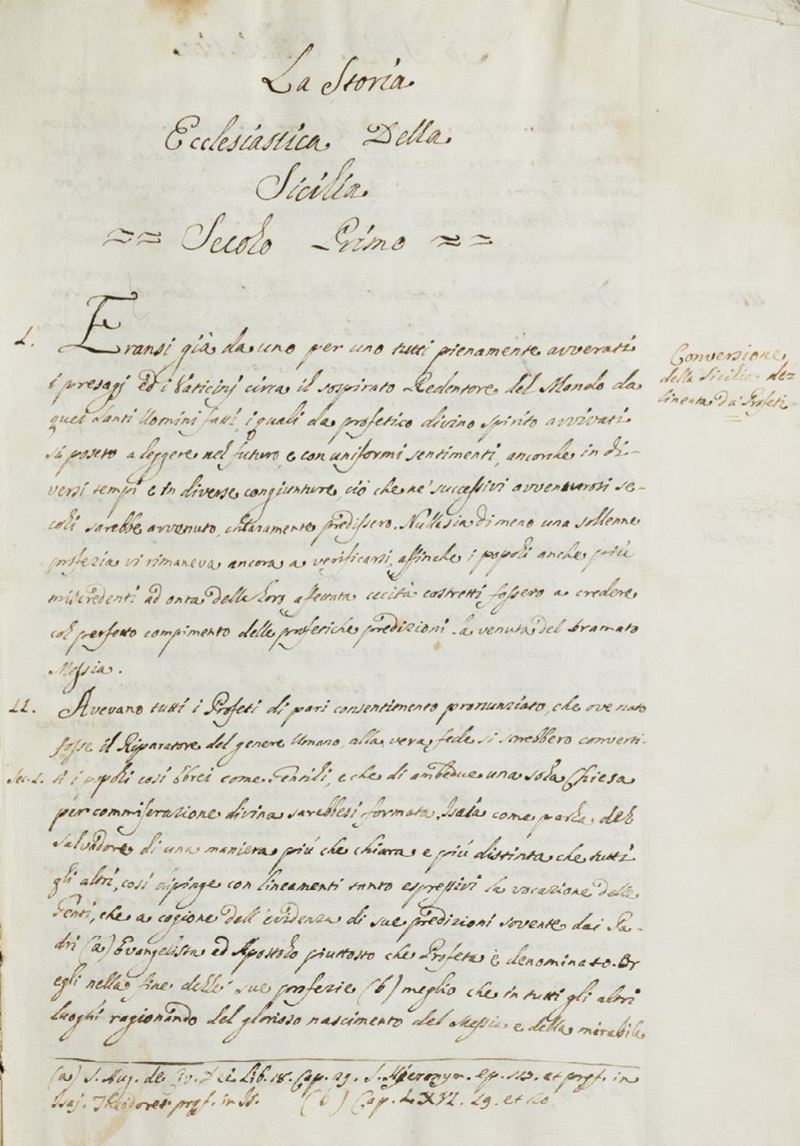 La Storia
Ecclesiastica Della
Sicilia
== Secolo Primo ==
I. Eransi già da uno per uno tutti pienamente avverati
i presagj ed i Vaticinj circa il sospirato Redentore del Mondo da
quei Santi Uomini fatti, i quali da profetico divino spirito avvivati
si posero a leggere nel futuro, e con uniformi sentimenti, ancorche in di-
versi tempi e in diverse congiunture, ciò che ne' successivi avventurosi se-
coli sarebbe avvenuto, chiaramente predissero. Nulla sia di meno una sollenne
profezia vi rimaneva ancora a verificarsi, affinche i popoli anche più
miscredenti ad onta della loro affettata cecità costretti fossero a credere
col perfetto compimento delle profetiche predizioni la venuta del bramato
Messia.
Conversione
della Sicilia de-
lineata da' Profeti
II. Avevano tutti i Profeti di pari consentimento pronunziato, che ove nato
fosse il Riparatore del genere Umano, alla vera fede si sarebbero converti-
Sec. I. ti i popoli così Ebrei come Gentili, e che di ambedue una sola Chiesa
per commiserazione divina sarebbesi formata. Isaia come parla del
Salvadore di una maniera più che chiara e più distinta che tutti
gli altri, così dipinge con lineamenti tanto espressivi la vocazione delle
Genti, che a cagione dell'evidenza di sue predizioni sovente dai Pa-
dri (a) Evangelista ed Apostolo piuttosto che Profeta è denominato. Or
egli nella fine delle sue profezie (b) meglio che in tutti gli altri
luoghi ragionando del glorioso nascimento del Messia e della mirabile
(a) S. Aug. de Civ. Dei Lib. 18. Cap. 29. S. Hieronym. ep. 117. et præf. in
Isaj. Theodoret. præf. in Is. (b) Cap. LXVI. 19. et 20.